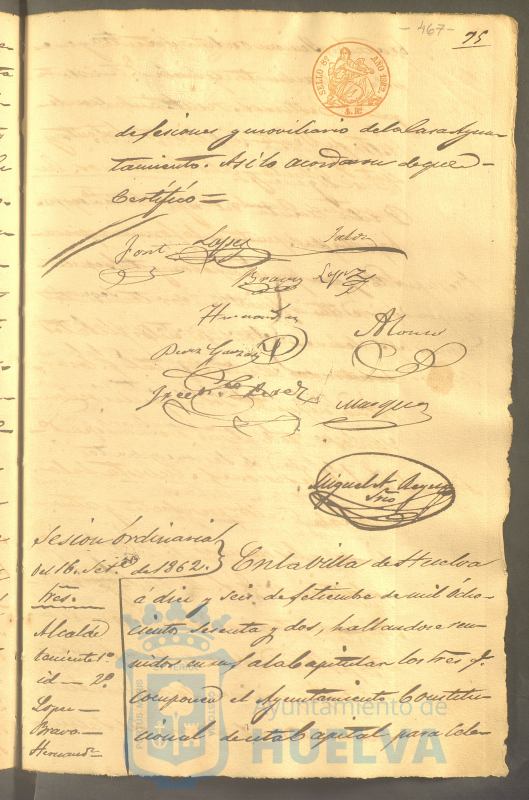 - 467 -
75
SELLO 8º AÑO 1862.
de sesiones y moviliario de la Casa Ayun-
tamiento. Asi lo acordaron de que -
Certifico =
Font Lopez
Bravo Lopez
Hernandez
Alonso
Perez Garzón
Marquez
Miguel
Srio
Sesion ordinaria
del 16 Set.e de 1862.
Sres.
Alcalde
teniente 1º
id - 2º
Lopez -
Bravo -
Hernandz
En la Villa de Huelva
á diez y seis de Setiembre de mil ocho-
cientos sesenta y dos, hallandose reu-
nidos en su sala Capitular los Sres. q.
componen el Ayuntamiento Constitu-
cional de esta Capital para cele-
Ayuntamiento de
HUELVA